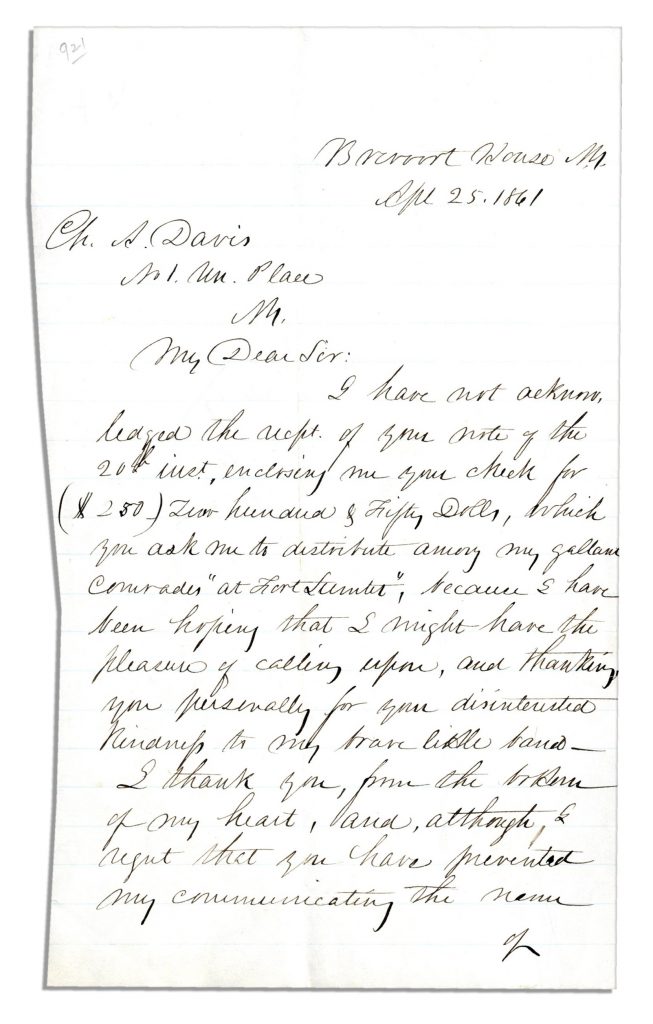 921
Brevoort House NY.
Apl 25. 1861
Ch. A. Davis
No 1. Un. Place
NY.
My Dear Sir:
I have not acknow,
ledged the recpt. of your note of the
20th inst., enclosing me your check for
($250) Two hundred & Fifty Dolls, which
you ask me to distribute among my gallant
comrades "at Fort Sumter", because I have
been hoping that I might have the
pleasure of calling upon, and thanking
you personally for your disinterested
kindness to my brave little band—
I thank you, from the bottom
of my heart, and, although, I
regret that you have prevented
my communicating the name
of